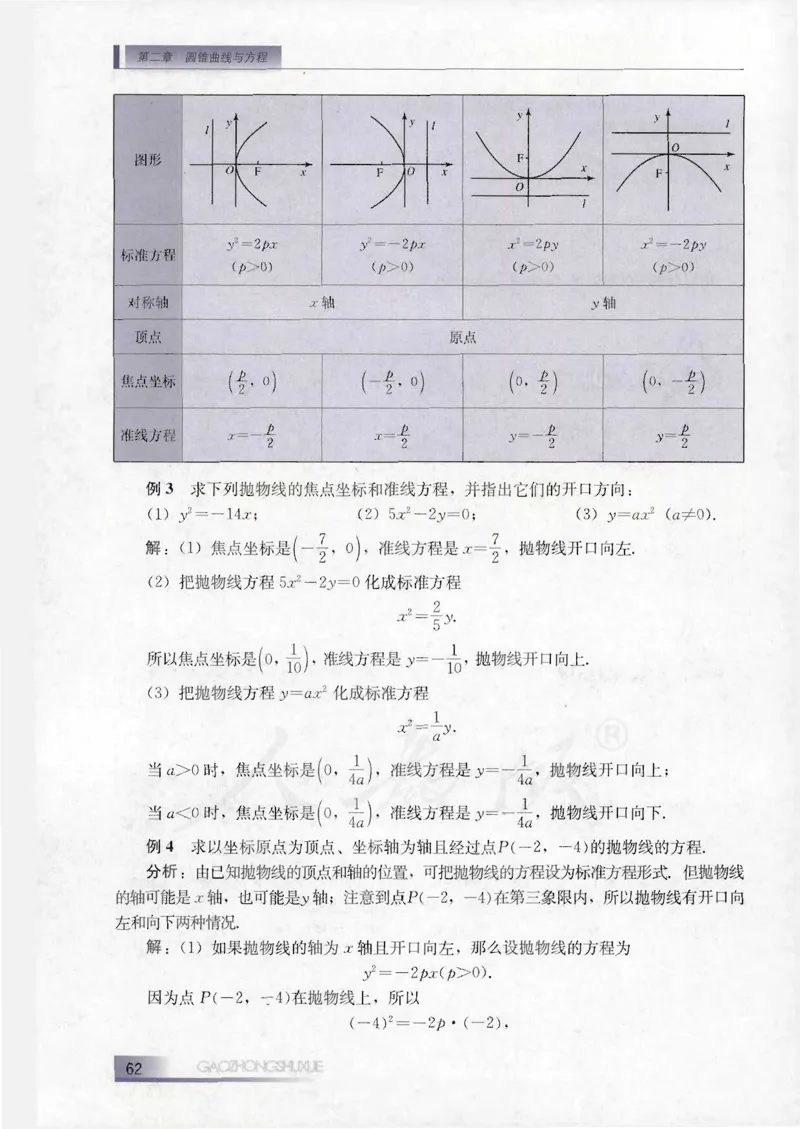 第二章 圆锥曲线与方程
图形
l y O F x
y l F O x
y F O x l
y l O F x
标准方程 y²=2px (p>0) y²=-2px (p>0) x²=2py (p>0) x²=-2py (p>0)
对称轴 x轴 y轴
顶点 原点
焦点坐标 (p/2, 0) (-p/2, 0) (0, p/2) (0, -p/2)
准线方程 x=-p/2 x=p/2 y=-p/2 y=p/2
例3 求下列抛物线的焦点坐标和准线方程，并指出它们的开口方向：
(1) y²=-14x; (2) 5x²-2y=0; (3) y=ax² (a≠0).
解：(1) 焦点坐标是(-7/2, 0)，准线方程是 x=7/2，抛物线开口向左.
(2) 把抛物线方程 5x²-2y=0 化成标准方程
x²=2/5y.
所以焦点坐标是(0, 1/10)，准线方程是 y=-1/10，抛物线开口向上.
(3) 把抛物线方程 y=ax² 化成标准方程
x²=1/a y.
当 a>0 时，焦点坐标是(0, 1/4a)，准线方程是 y=-1/4a，抛物线开口向上；
当 a<0 时，焦点坐标是(0, 1/4a)，准线方程是 y=-1/4a，抛物线开口向下.
例4 求以坐标原点为顶点、坐标轴为轴且经过点P(-2, -4)的抛物线的方程.
分析：由已知抛物线的顶点和轴的位置，可把抛物线的方程设为标准方程形式. 但抛物线
的轴可能是 x 轴，也可能是y轴；注意到点P(-2, -4)在第三象限内，所以抛物线有开口向
左和向下两种情况.
解：(1) 如果抛物线的轴为 x 轴且开口向左，那么设抛物线的方程为
y²=-2px(p>0).
因为点 P(-2, -4)在抛物线上，所以
(-4)²=-2p·(-2),
62 GAOZHONGSHUXUE